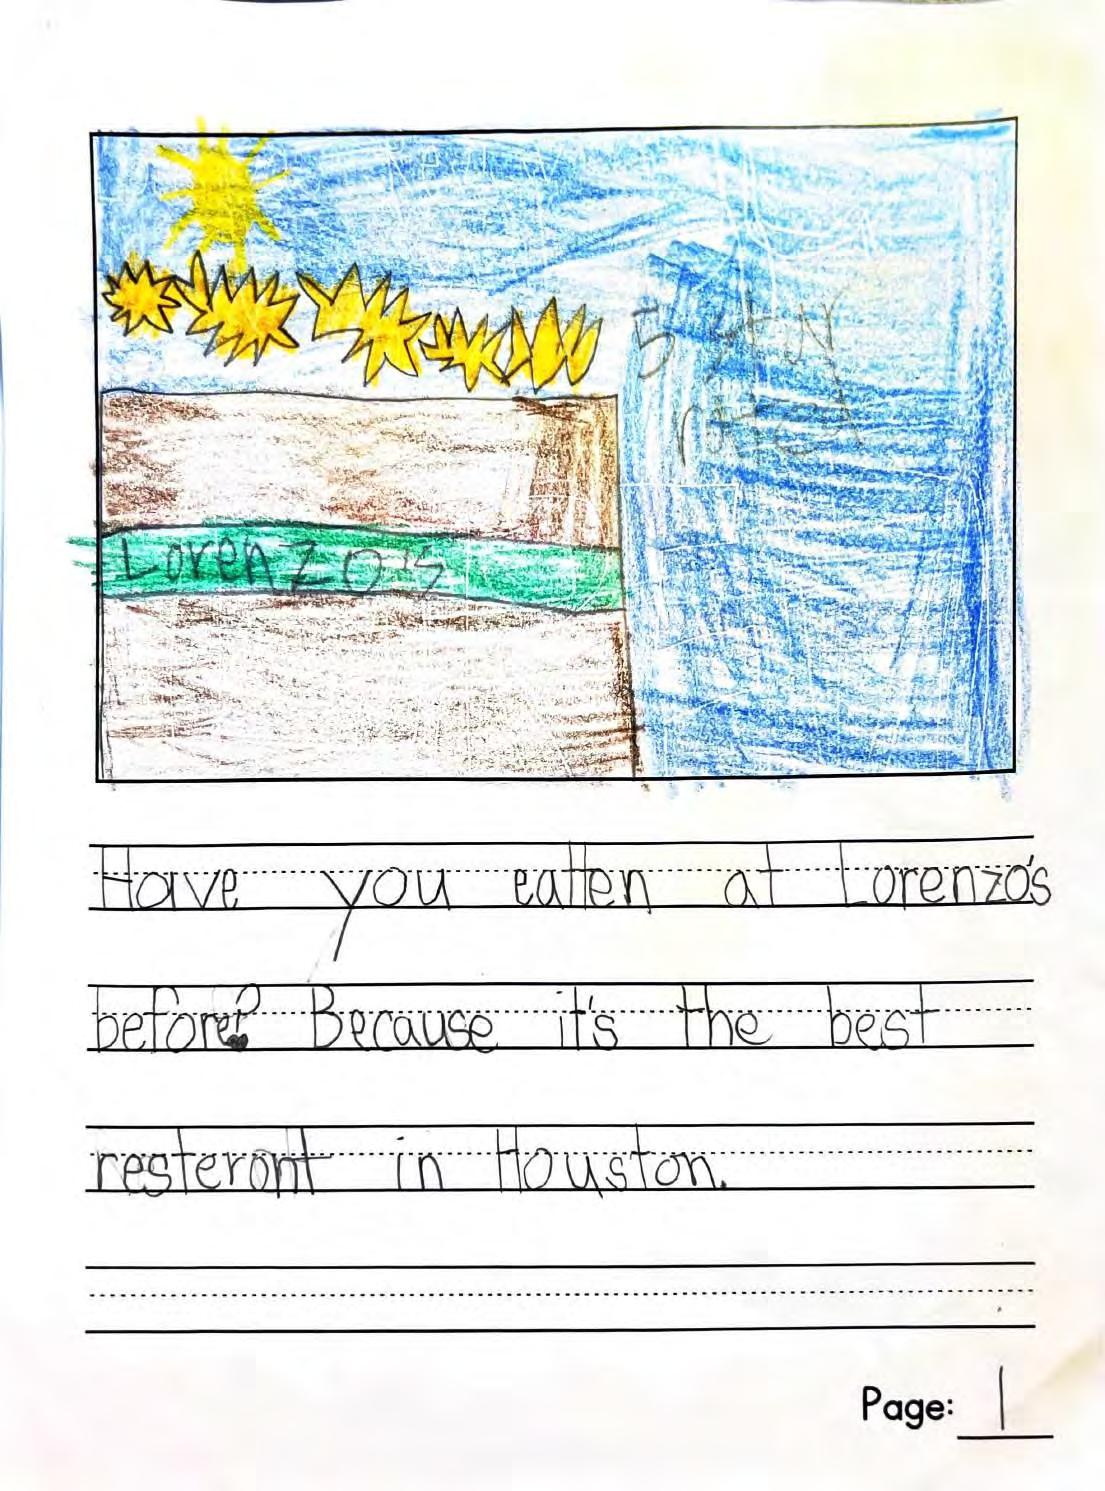 5 star
rated
Lorenzo's
Have you eatten at Lorenzo's
before? Because it's the best
resteront in Houston.
Page: 1